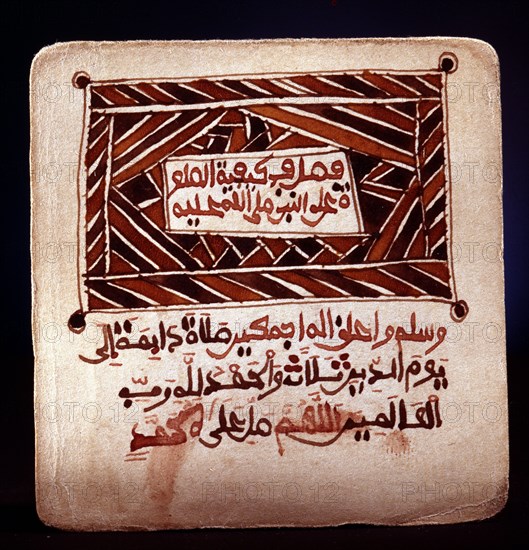 فصل في كيفية الصلو
ة على النبي صلى الله عليه
وسلم واعلى اله اجمعين صلاة دايمة إلى
يوم الدين ثلاثة والحمد لله رب
العالمين اللهم صل على محمد
PHOTO12